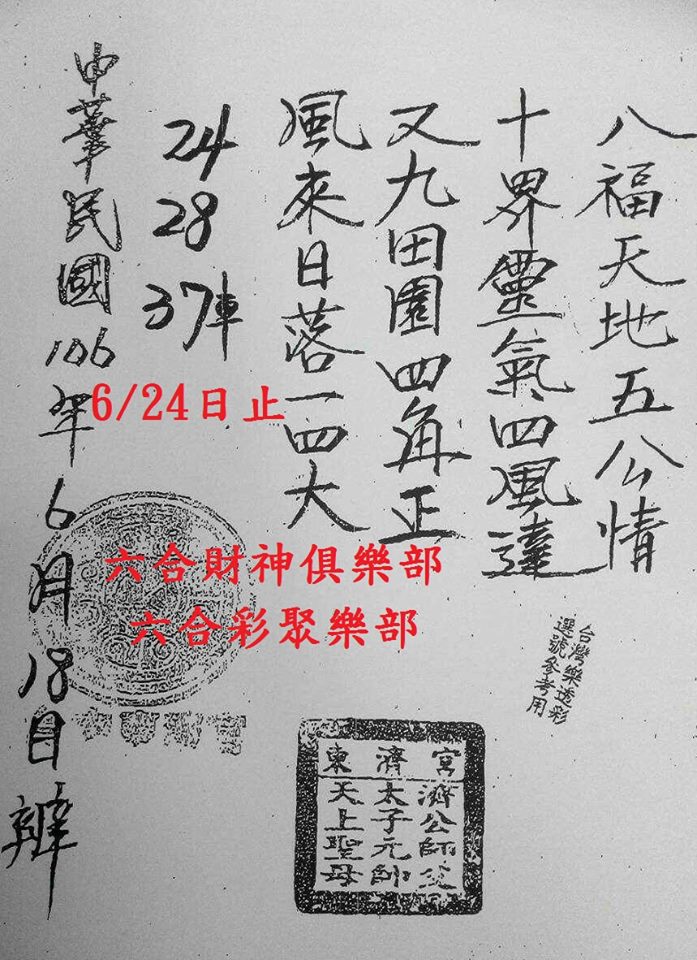 八福天地五公情
十界靈氣四風達
又九田園四角正
風來日落一四大
24
28
37車
中華民國106年6月18日辦
6/24日止
六合財神俱樂部
六合彩聚樂部
台灣樂透彩
選號參考用
東濟宮
濟公師父
太子元帥
天上聖母